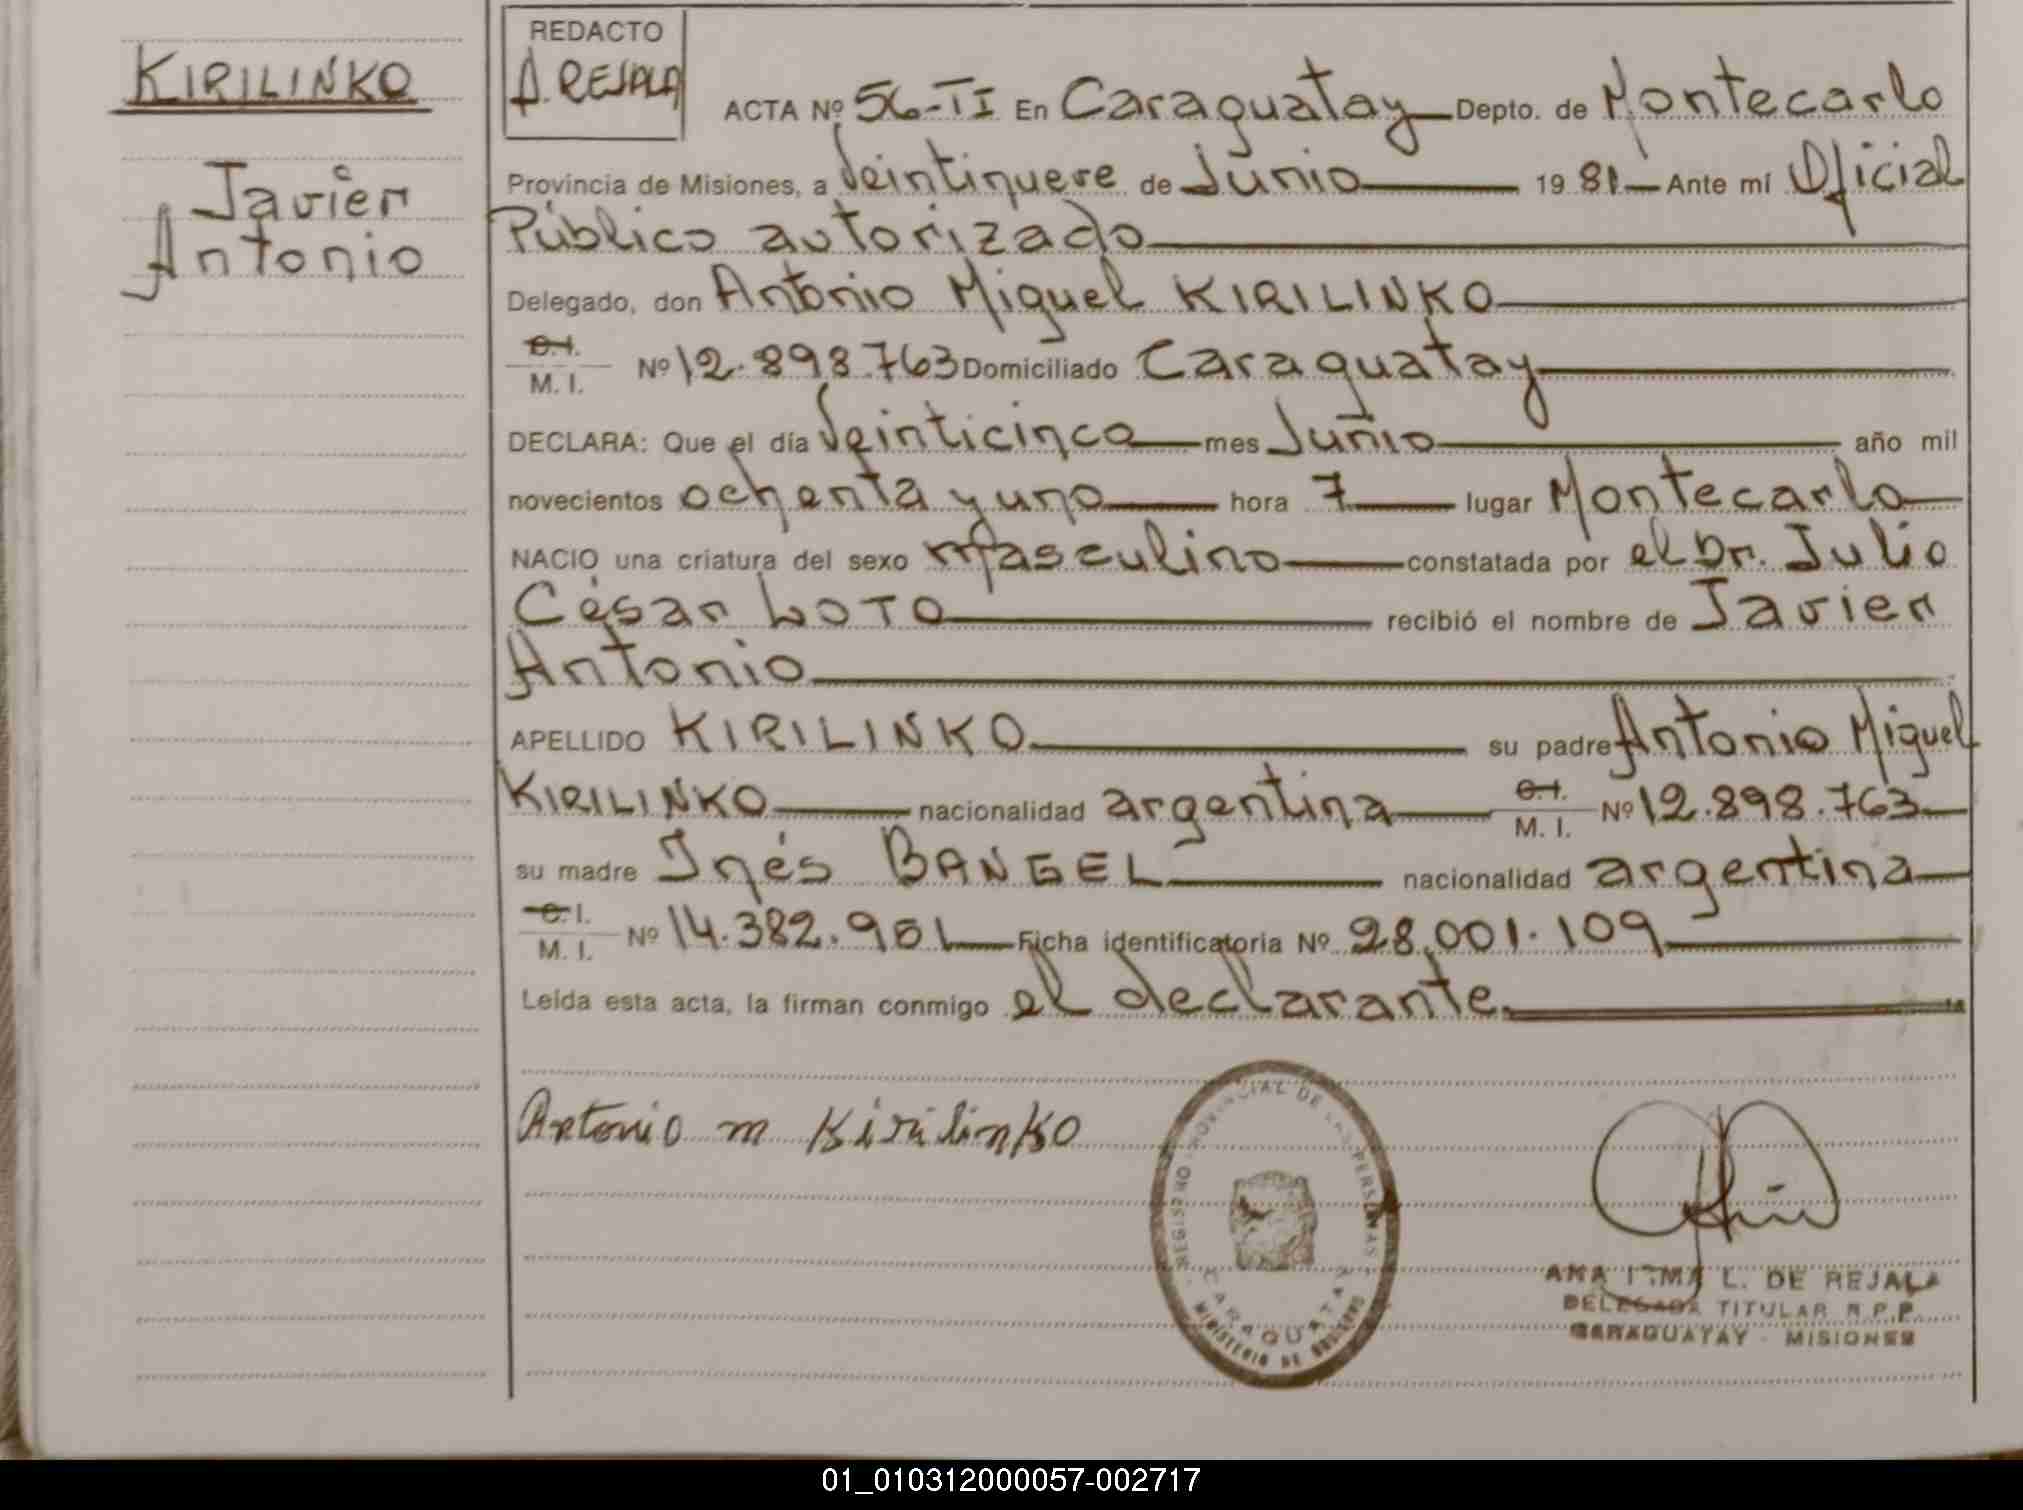 KIRILINKO
Javier
Antonio
REDACTO
A. REJALA
ACTA Nº 56-TI En Caraguatay Depto. de Montecarlo
Provincia de Misiones, a Veintinueve de Junio 1981 Ante mí Oficial
Público autorizado
Delegado, don Antonio Miguel KIRILINKO
C.I.
M. I. Nº 12.898.763 Domiciliado Caraguatay
DECLARA: Que el día Veinticinco mes Junio año mil
novecientos ochenta y uno hora 7 lugar Montecarlo
NACIO una criatura del sexo masculino constatada por el Dr. Julio
César LOTO recibió el nombre de Javier
Antonio
APELLIDO KIRILINKO su padre Antonio Miguel
KIRILINKO nacionalidad argentina C.I. M. I. Nº 12.898.763
su madre Inés BANGEL nacionalidad argentina
C.I.
M. I. Nº 14.382.901 Ficha identificatoria Nº 28.001.109
Leída esta acta, la firman conmigo el declarante.
Antonio m Kirilinko
REGISTRO PROVINCIAL DE LAS PERSONAS
CARAGUATAY
MINISTERIO DE GOBIERNO
ANA IRMA L. DE REJALA
DELEGADA TITULAR R.P.P.
CARAGUATAY - MISIONES
01_010312000057-002717